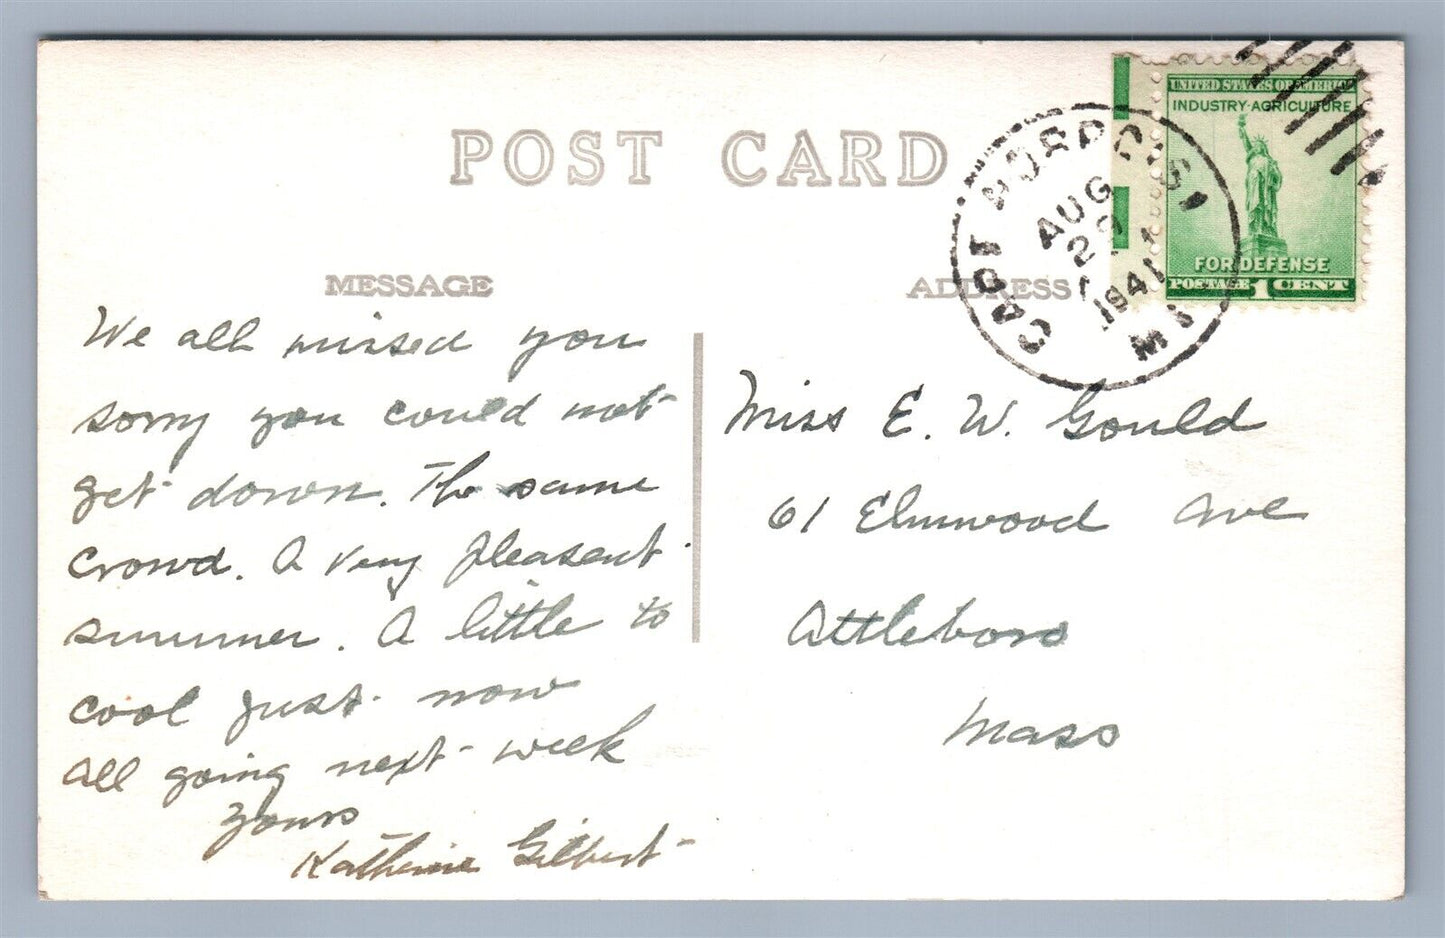 POST CARD
MESSAGE
We all missed you
sorry you could not
get down. The same
crowd. A very pleasant
summer. A little to
cool just now
All going next week
Yours
Katherine Gilbert
ADDRESS
AUG
29
1941
UNITED STATES OF AMERICA
INDUSTRY·AGRICULTURE
FOR DEFENSE
POSTAGE 1 CENT
Miss E. W. Gould
61 Elmwood Ave
Attleboro
Mass